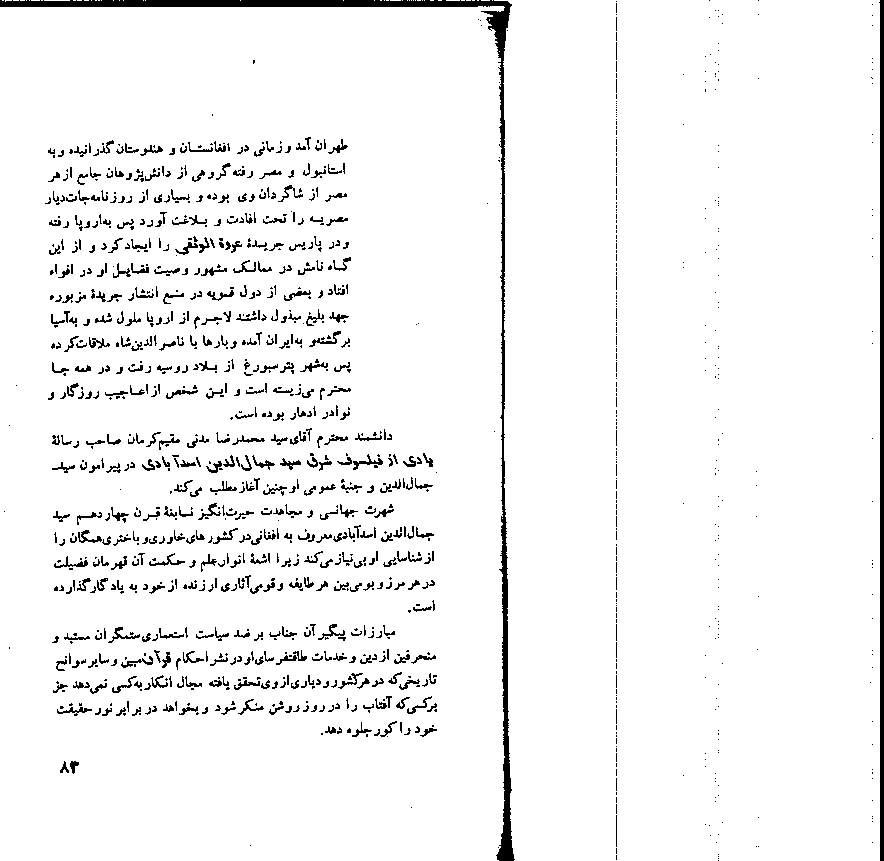 طهران آمد و زمانی در افغانستان و هندوستان گذرانیده و به
استانبول و مصر رفته گروهی از دانش‌پژوهان جامع ازهر
مصر از شاگردان وی بوده و بسیاری از روزنامه‌جات دیار
مصریه را تحت افادت و بلاغت آورد پس به‌اروپا رفته
و در پاریس جریدهٔ عروة الوثقی را ایجاد کرد و از این
گاه نامش در ممالک مشهور وصیت فضایل او در افواه
افتاد و بعضی از دول قویه در منع انتشار جریدهٔ مزبوره
جهد بلیغ مبذول داشتند لاجرم از اروپا ملول شده و به‌آسیا
برگشته‌و به‌ایران آمده و بارها با ناصرالدین‌شاه ملاقات‌کرده
پس به‌شهر پترسبورغ از بلاد روسیه رفت و در همه جا
محترم می‌زیسته است و این شخص از اعاجیب روزگار و
نوادر ادهار بوده است.
دانشمند محترم آقای سید محمدرضا مدنی مقیم‌کرمان صاحب رسالهٔ
یادی از فیلسوف شرق سید جمال‌الدین اسدآبادی در پیرامون سید
جمال‌الدین و جنبهٔ عمومی او چنین آغاز مطلب می‌کند.
شهرت جهانی و مجاهدت حیرت‌انگیز نابغهٔ قرن چهاردهم سید
جمال‌الدین اسدآبادی معروف به افغانی در کشورهای خاوری و باختری همگان را
از شناسایی او بی‌نیاز می‌کند زیرا اشعهٔ انوار علم و حکمت آن قهرمان فضیلت
در هر مرز و بومی بین هر طایفه و قومی آثاری ارزنده از خود به یادگار گذارده
است.
مبارزات پیگیر آن جناب بر ضد سیاست استعماری ستمگران مستبد و
منحرفین از دین و خدمات طاقتفرسای او در نشر احکام قرآن مبین و سایر سوانح
تاریخی‌که در هر کشور و دیاری از وی تحقق یافته مجال انکار به‌کسی نمی‌دهد جز
برکسی‌که آفتاب را در روز روشن منکر شود و بخواهد در برابر نور حقیقت
خود را کور جلوه دهد.
۸۳